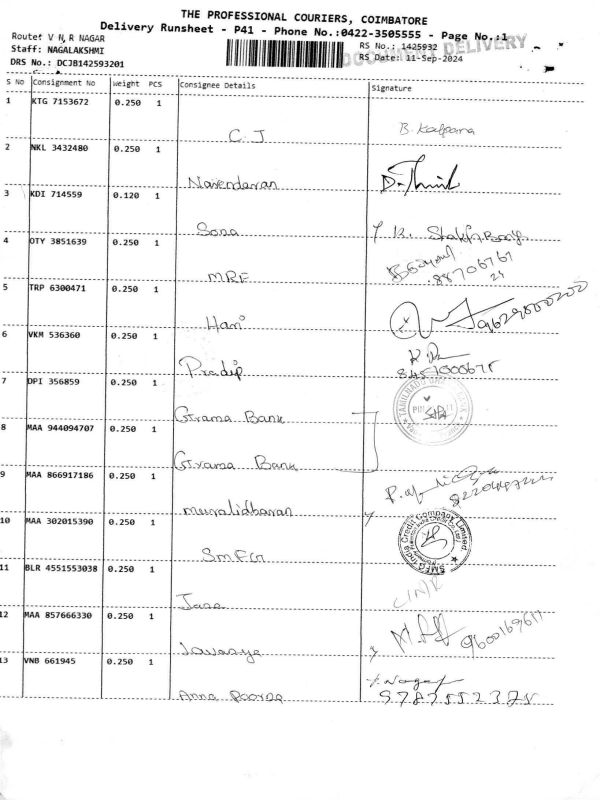 THE PROFESSIONAL COURIERS, COIMBATORE
Delivery Runsheet - P41 - Phone No.:0422-3505555 - Page No.:1
Route: V N R NAGAR
Staff: NAGALAKSHMI
DRS No.: DCJB142593201
RS No.: 1425932
RS Date: 11-Sep-2024
DOCUMENT DELIVERY
S No Consignment No Weight PCS Consignee Details Signature
1 KTG 7153672 0.250 1
C.J B. Kalpana
2 NKL 3432480 0.250 1
Narendaran
3 KDI 714559 0.120 1
Sona
4 OTY 3851639 0.250 1
MRF 88706767
24
5 TRP 6300471 0.250 1
Hari 9629800200
6 VKM 536360 0.250 1
Pradip 8451000678
7 DPI 356859 0.250 1
Grama Bank
8 MAA 944094707 0.250 1
Grama Bank
9 MAA 866917186 0.250 1
muralidharan
10 MAA 302015390 0.250 1
SMFG SMFG India Credit Company Limited
11 BLR 4551553038 0.250 1
Jana
12 MAA 857666330 0.250 1
Lavanya 9600169617
13 VNB 661945 0.250 1
Anna Poorna